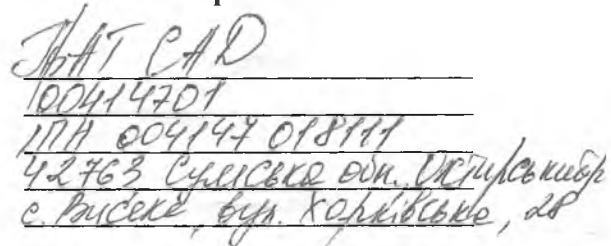 ПрАТ САД
00414701
ІПН 004147018111
42763 Сумська обл. Охтирський р
с. Високе, вул. Харківська, 28